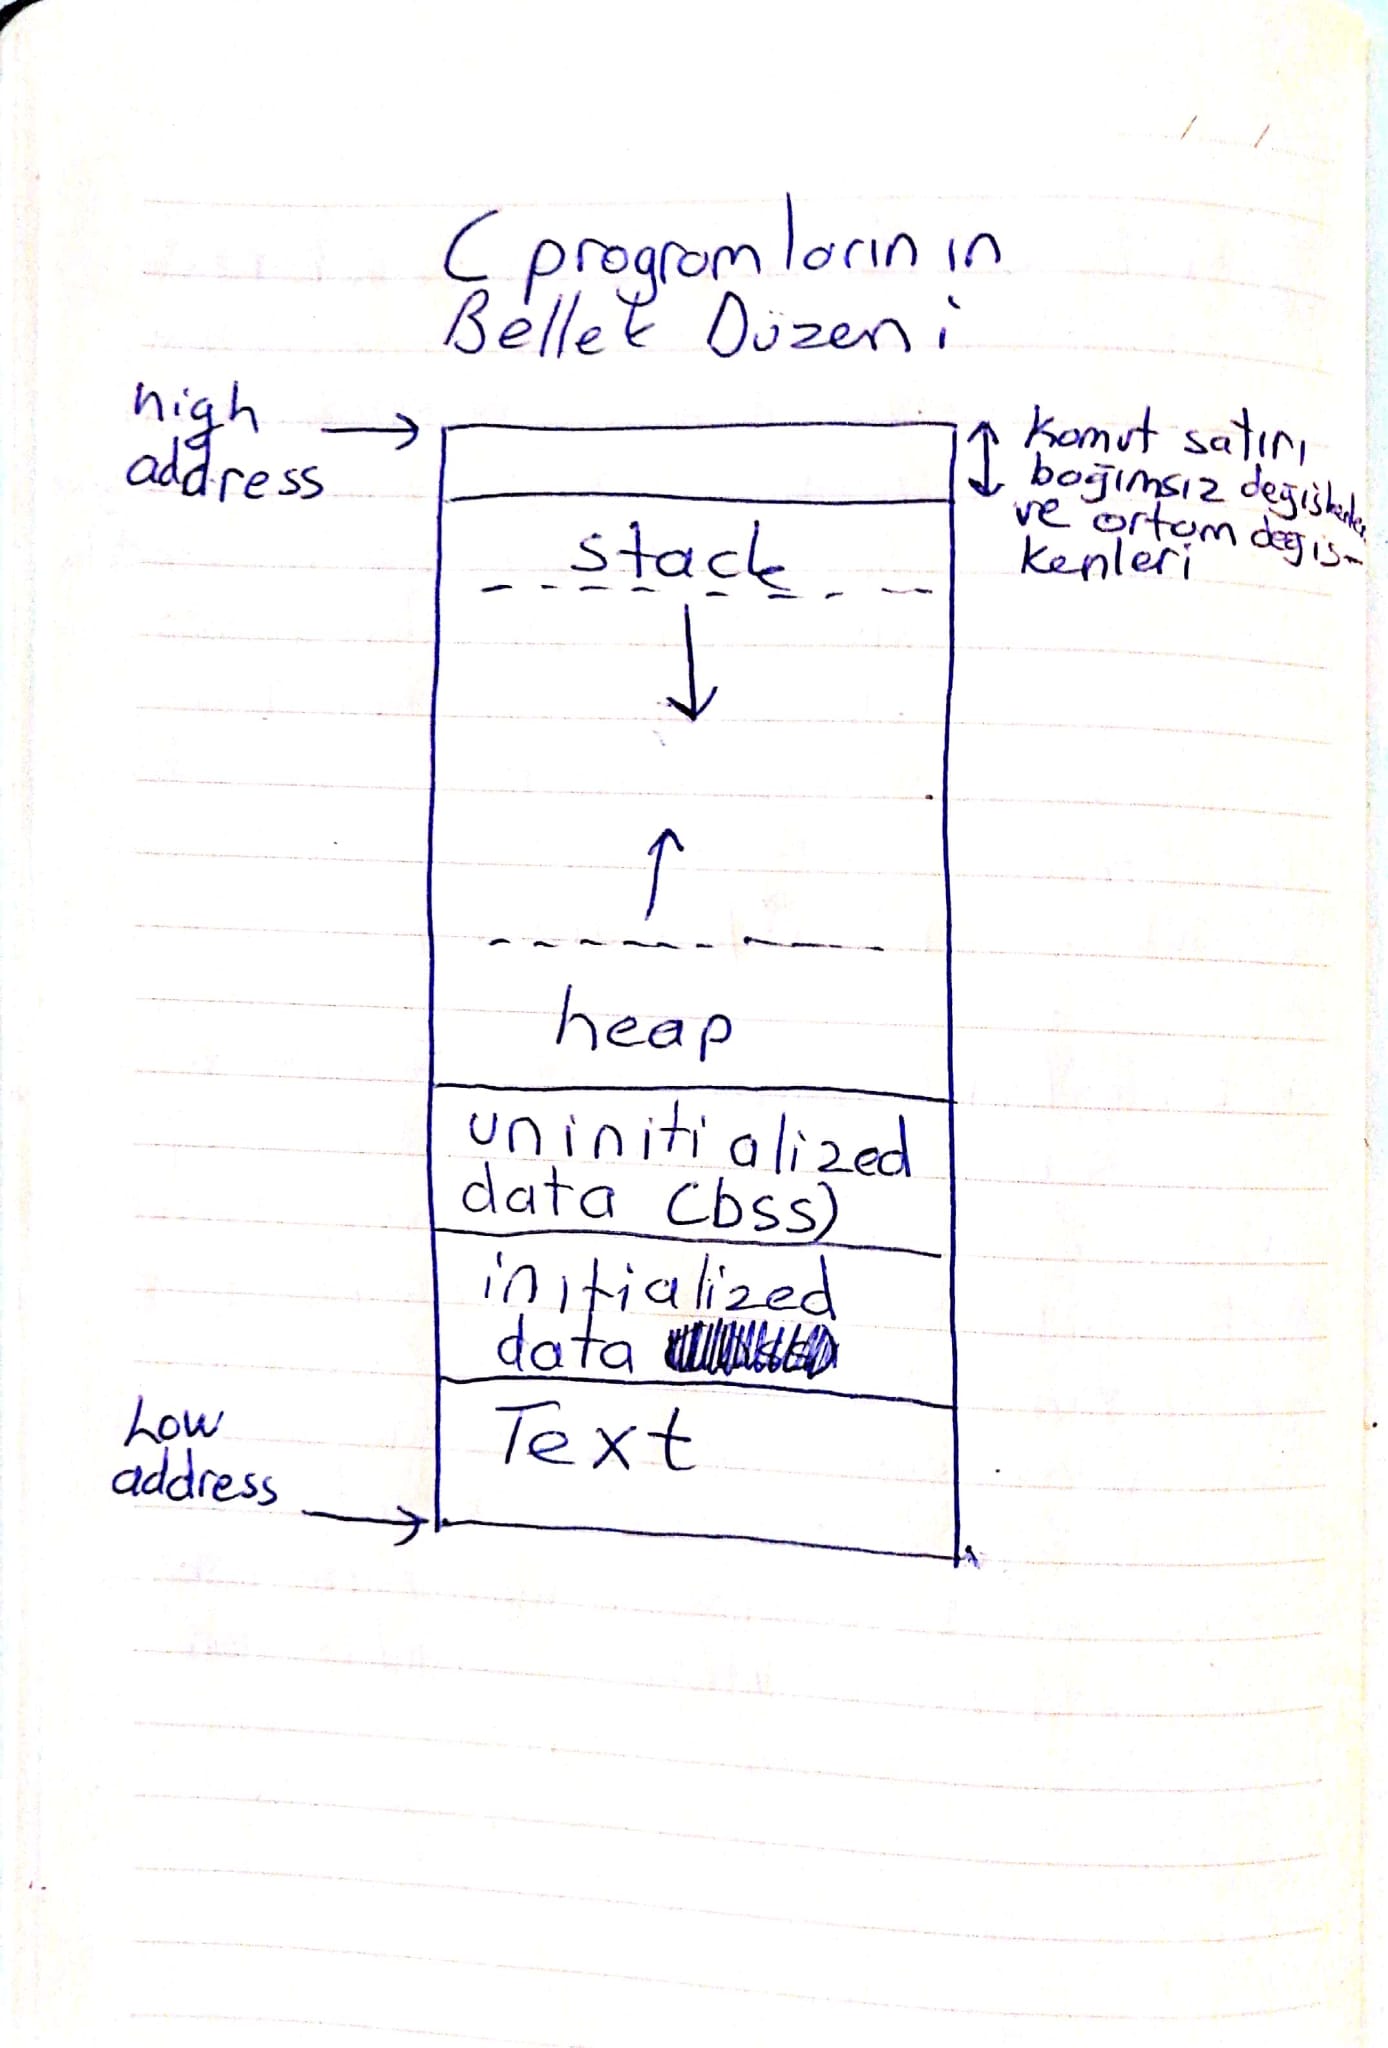 C programlarının
Bellek Düzeni
high
address
Komut satırı
bağımsız değişkenler
ve ortam değiş-
kenleri
stack
heap
uninitialized
data (bss)
initialized
data
Text
Low
address